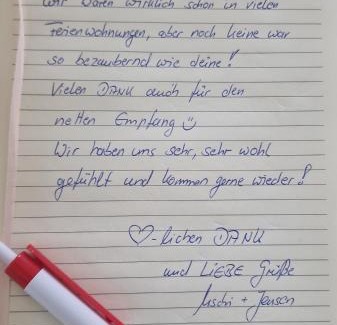 wir waren wirklich schon in vielen
Ferienwohnungen, aber noch keine war
so bezaubernd wie deine!
Vielen DANK auch für den
netten Empfang ☺
Wir haben uns sehr, sehr wohl
gefühlt und kommen gerne wieder!
♡-lichen DANK
und LIEBE Grüße
+